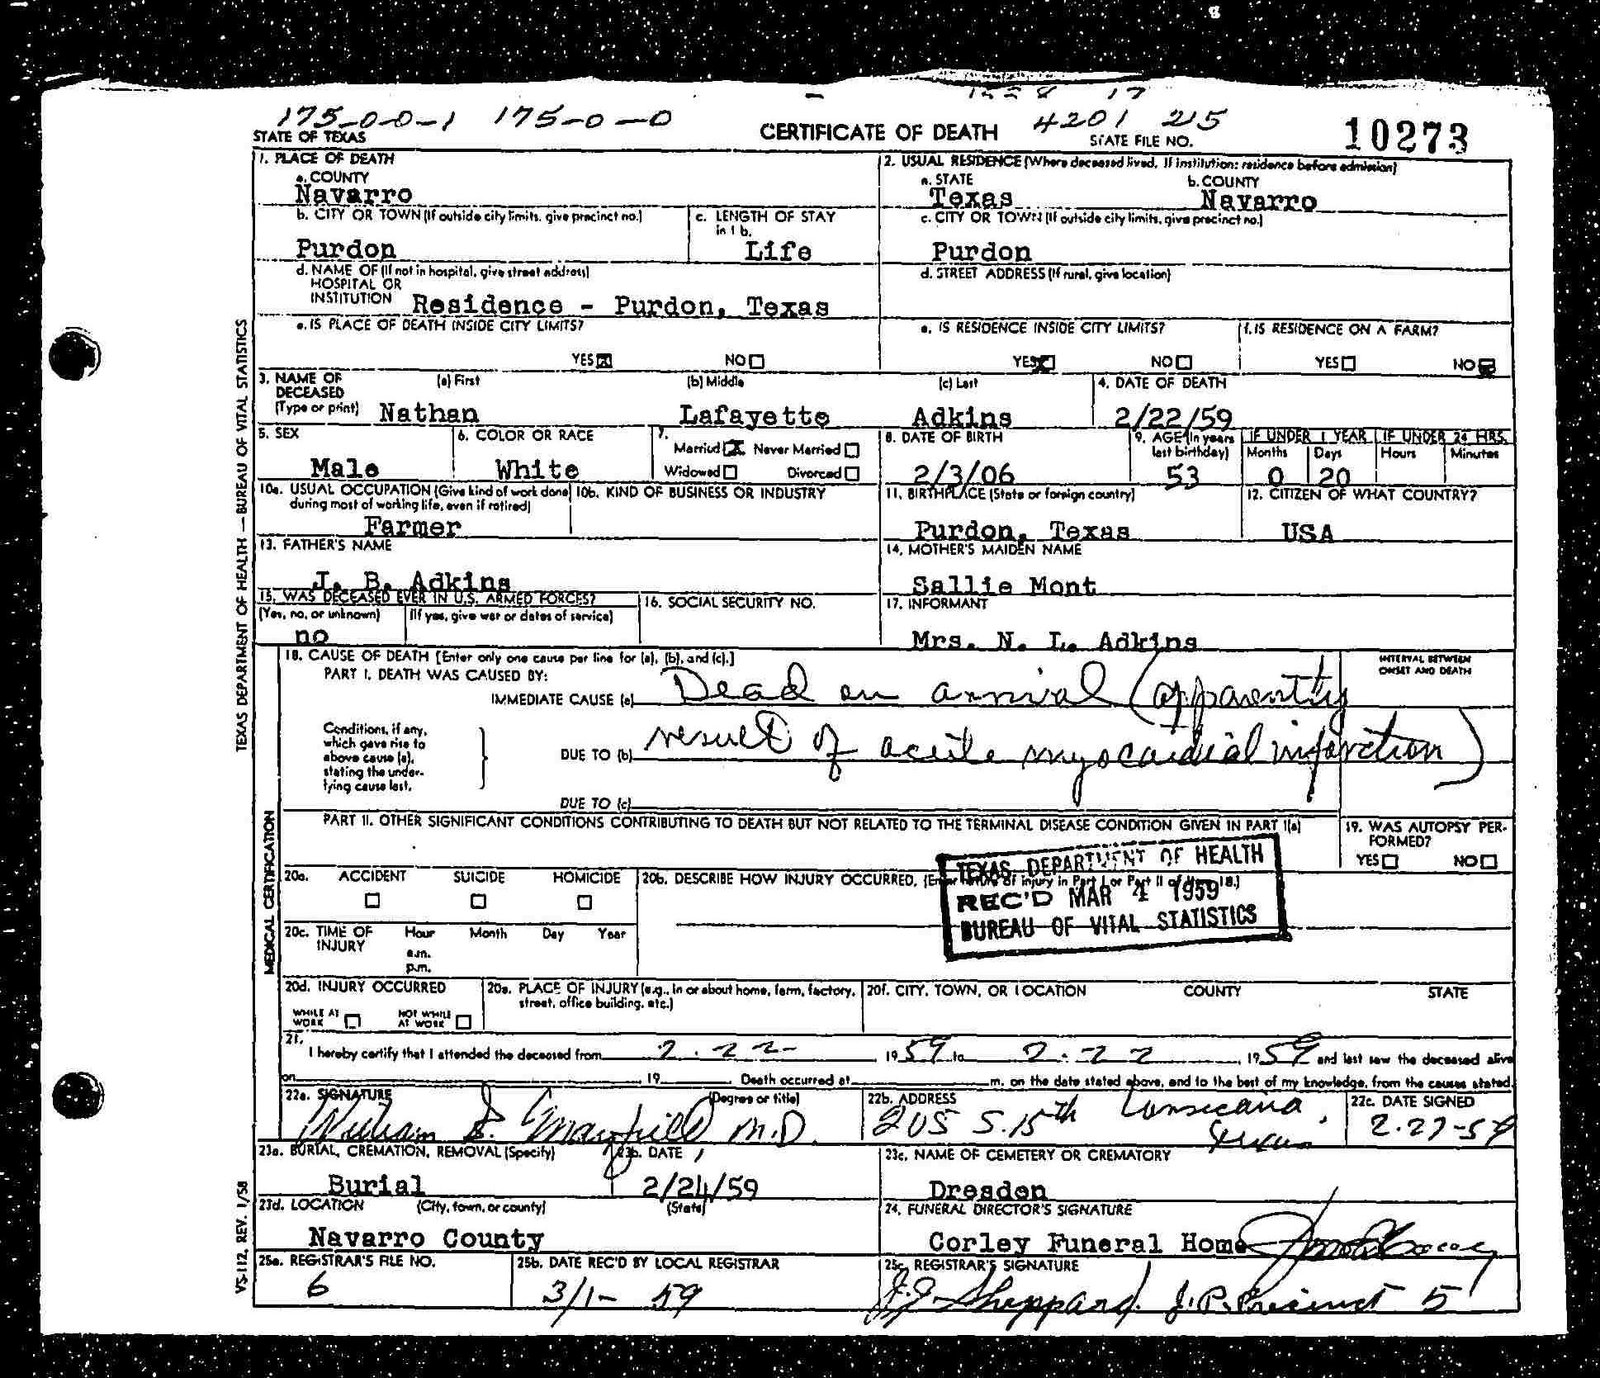 175-0-0-1 175-0-0 4201 215
STATE OF TEXAS CERTIFICATE OF DEATH STATE FILE NO. 10273
1. PLACE OF DEATH
a. COUNTY
Navarro
2. USUAL RESIDENCE (Where deceased lived. If institution: residence before admission)
a. STATE b. COUNTY
Texas Navarro
b. CITY OR TOWN (If outside city limits, give precinct no.)
Purdon
c. LENGTH OF STAY
in 1 b.
Life
c. CITY OR TOWN (If outside city limits, give precinct no.)
Purdon
d. NAME OF (If not in hospital, give street address)
HOSPITAL OR
INSTITUTION Residence - Purdon, Texas
d. STREET ADDRESS (If rural, give location)
e. IS PLACE OF DEATH INSIDE CITY LIMITS?
YES NO
e. IS RESIDENCE INSIDE CITY LIMITS?
YES NO
f. IS RESIDENCE ON A FARM?
YES NO
3. NAME OF
DECEASED
(Type or print)
(a) First (b) Middle (c) Last
Nathan Lafayette Adkins
4. DATE OF DEATH
2/22/59
5. SEX
Male
6. COLOR OR RACE
White
7.
Married X Never Married
Widowed Divorced
8. DATE OF BIRTH
2/3/06
9. AGE (In years
last birthday)
53
IF UNDER 1 YEAR IF UNDER 24 HRS.
Months Days Hours Minutes
0 20
10a. USUAL OCCUPATION (Give kind of work done
during most of working life, even if retired)
Farmer
10b. KIND OF BUSINESS OR INDUSTRY
11. BIRTHPLACE (State or foreign country)
Purdon, Texas
12. CITIZEN OF WHAT COUNTRY?
USA
13. FATHER'S NAME
J. B. Adkins
14. MOTHER'S MAIDEN NAME
Sallie Mont
15. WAS DECEASED EVER IN U.S. ARMED FORCES?
(Yes, no, or unknown) (If yes, give war or dates of service)
no
16. SOCIAL SECURITY NO.
17. INFORMANT
Mrs. N. L. Adkins
18. CAUSE OF DEATH [Enter only one cause per line for (a), (b), and (c).]
INTERVAL BETWEEN
ONSET AND DEATH
PART I. DEATH WAS CAUSED BY:
IMMEDIATE CAUSE (a) Dead on arrival (apparently
Conditions, if any,
which gave rise to
above cause (a),
stating the under-
lying cause last.
DUE TO (b) result of acute myocardial infarction)
DUE TO (c)
PART II. OTHER SIGNIFICANT CONDITIONS CONTRIBUTING TO DEATH BUT NOT RELATED TO THE TERMINAL DISEASE CONDITION GIVEN IN PART I(a)
19. WAS AUTOPSY PER-
FORMED?
YES NO
20a. ACCIDENT SUICIDE HOMICIDE
20b. DESCRIBE HOW INJURY OCCURRED. (Enter nature of injury in Part I or Part II of Item 18.)
TEXAS DEPARTMENT OF HEALTH
REC'D MAR 4 1959
BUREAU OF VITAL STATISTICS
20c. TIME OF
INJURY
Hour Month Day Year
a.m.
p.m.
20d. INJURY OCCURRED
WHILE AT
WORK
NOT WHILE
AT WORK
20e. PLACE OF INJURY (e.g., in or about home, farm, factory,
street, office building, etc.)
20f. CITY, TOWN, OR LOCATION COUNTY STATE
21.
I hereby certify that I attended the deceased from 2-22- 1959 to 2-22 1959 and last saw the deceased alive
on 19 Death occurred at m. on the date stated above, and to the best of my knowledge, from the causes stated.
22a. SIGNATURE (Degree or title)
William S. Mayfield M.D.
22b. ADDRESS
205 S. 15th Corsicana, Texas
22c. DATE SIGNED
2-27-59
23a. BURIAL, CREMATION, REMOVAL (Specify)
Burial
23b. DATE
2/24/59
23c. NAME OF CEMETERY OR CREMATORY
Dresden
23d. LOCATION (City, town, or county) (State)
Navarro County
24. FUNERAL DIRECTOR'S SIGNATURE
Corley Funeral Home
25a. REGISTRAR'S FILE NO.
6
25b. DATE REC'D BY LOCAL REGISTRAR
3/1- 59
25c. REGISTRAR'S SIGNATURE
Sheppard J.P. Precinct 5
TEXAS DEPARTMENT OF HEALTH — BUREAU OF VITAL STATISTICS
MEDICAL CERTIFICATION
VS-112, REV. 1/58